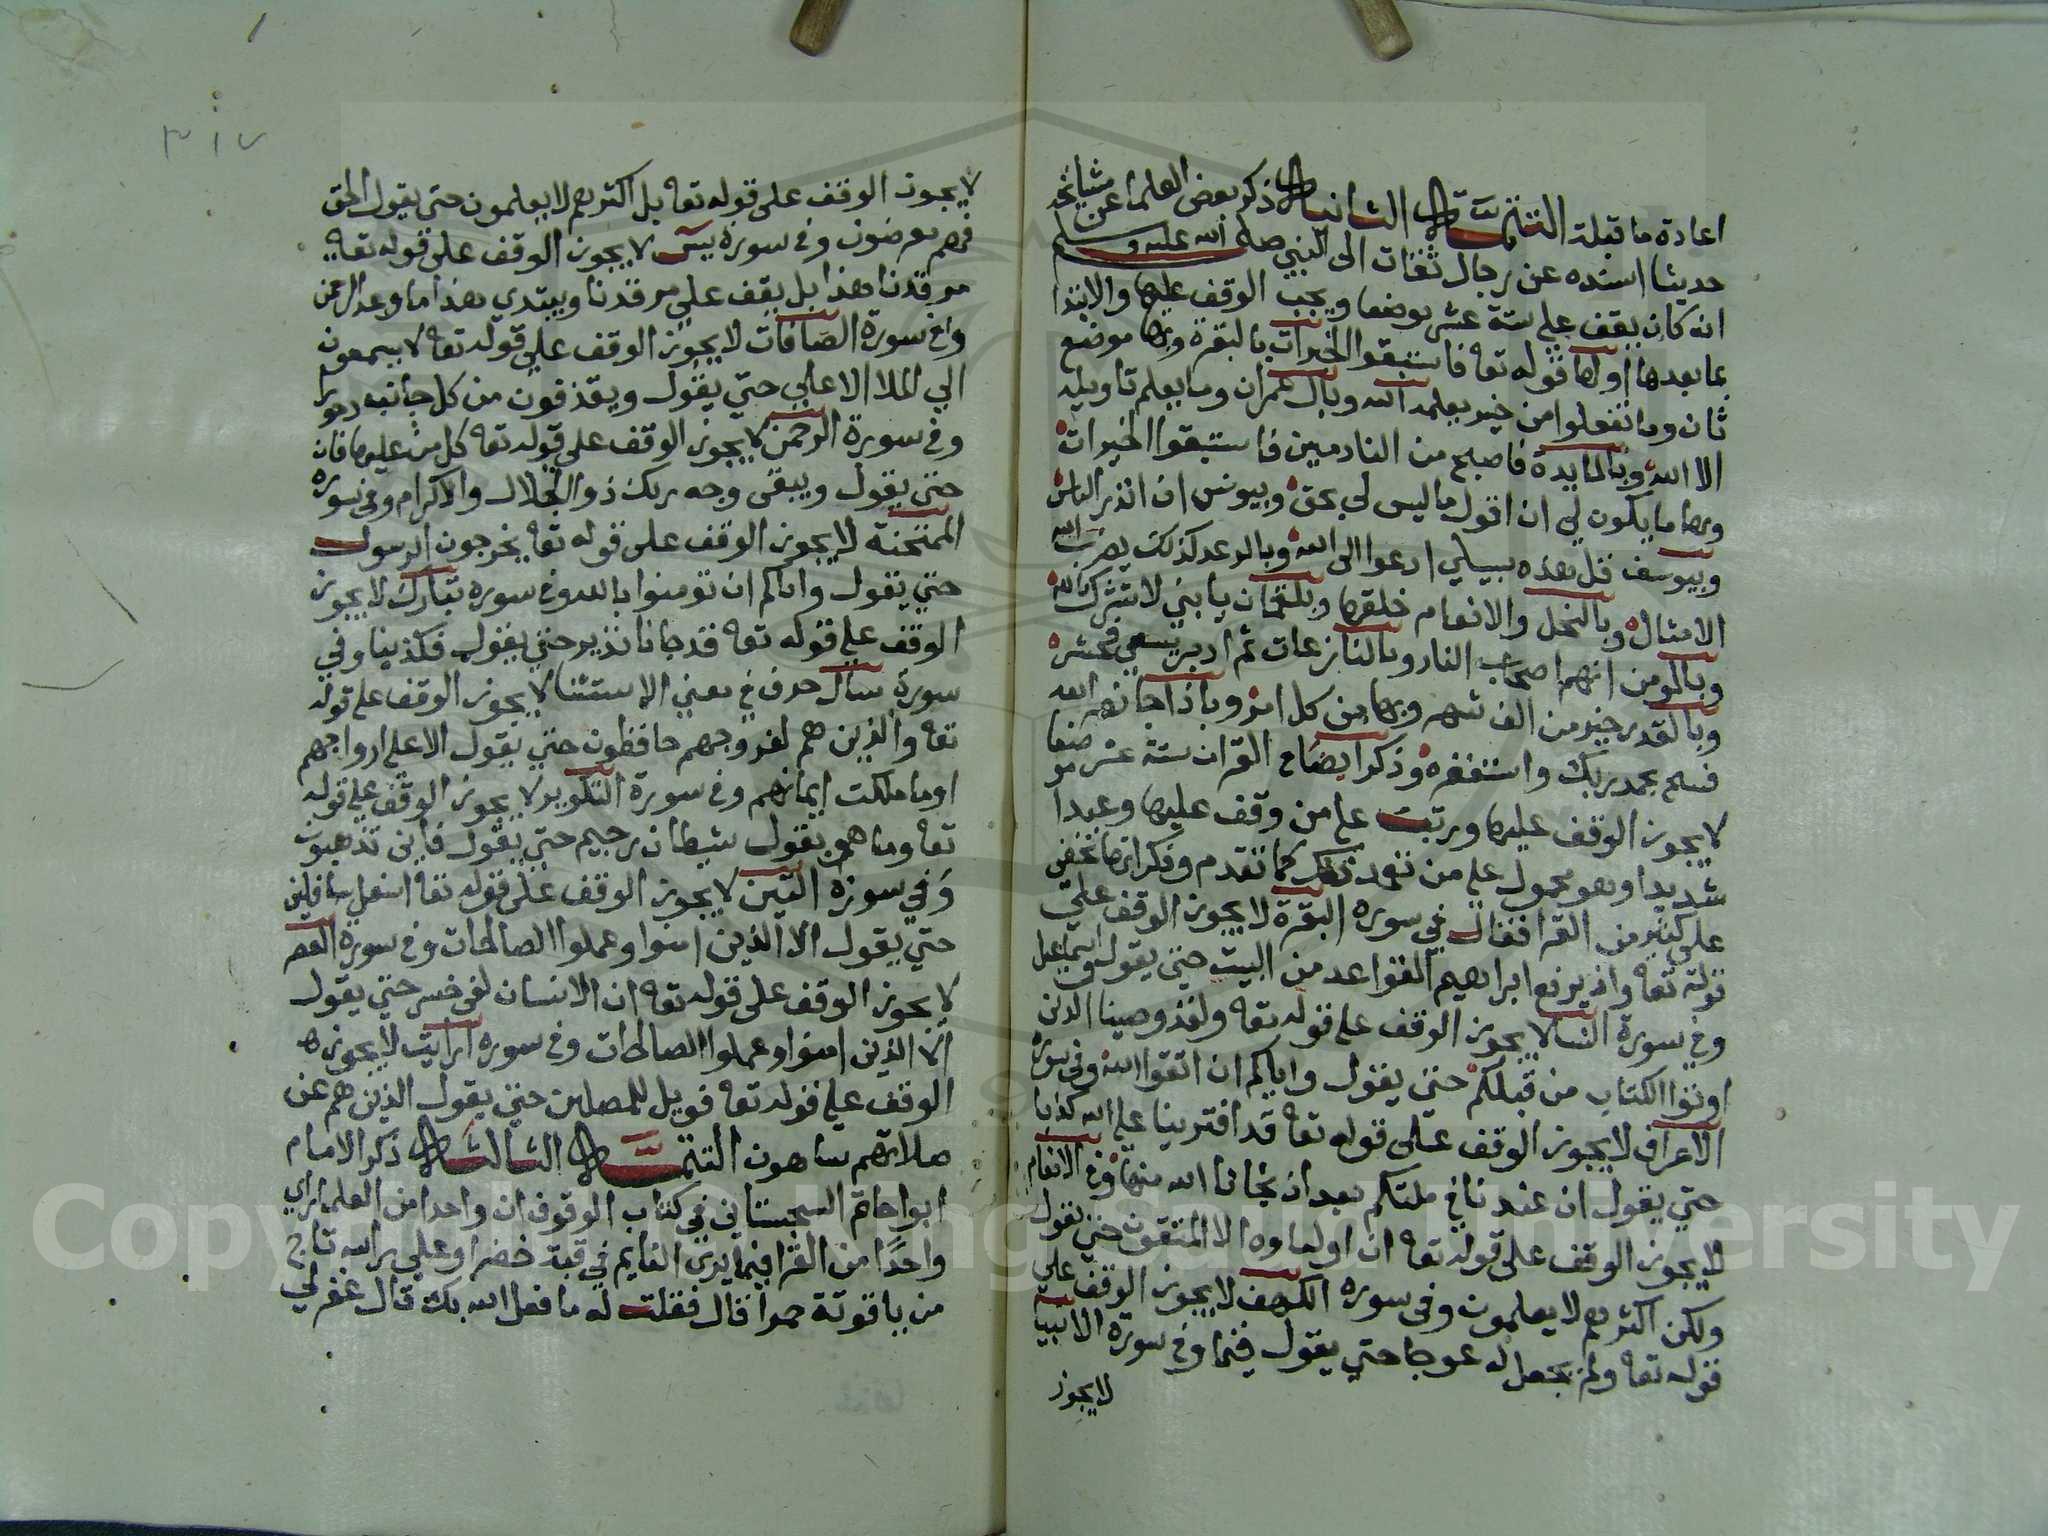 اعادة ما قبله التتمة الثانية ذكر بعض العلما عن مشايخه
حديثا اسنده عن رجال ثقات الى النبي صلى الله عليه وسلم
انه كان يقف على ستة عشر موضعا ويجب الوقف عليها والابتدا
بما بعدها اولها قوله تعه فاستبقوا الخيرات بالبقرة وبها موضع
ثان وما تفعلوا من خير يعلمه الله وبال عمران وما يعلم تاويله
الا الله وبالمايدة فاصبح من النادمين فاستبقوا الخيرات
وبها ما يكون لي ان اقول ما ليس لي بحق وبيونس ان انذر الناس
وبيوسف قل هذه سبيلي ادعوا الى الله وبالرعد كذلك يضرب الله
الامثال وبالنحل والانعام خلقها وبلقمان يا بني لا تشرك بالله
وبالمومن انهم اصحاب النار وبالنازعات ثم ادبر يسعى فحشر
وبالقدر خير من الف شهر وبها من كل امر وباذا جا نصر الله
فسبح بحمد ربك واستغفره وذكر ايضا في القران ستة عشر موضعا
لا يجوز الوقف عليها ورتب على من وقف عليها وعيدا
شديدا وهو محمول على من تعمد ذلك كما تقدم وذكر انها تخفى
على كثير من القرا فقال في سوره البقرة لا يجوز الوقف على
قوله تعه واذ يرفع ابراهيم القواعد من البيت حتي يقول واسماعيل
وفي سورة النسا لا يجوز الوقف على قوله تعه ولقد وصينا الذين
اوتوا الكتاب من قبلكم حتي يقول واياكم ان اتقوا الله وفي سوره
الاعراف لا يجوز الوقف على قوله تعه قد افترينا على الله كذبا
حتي يقول ان عدنا في ملتكم بعد اذ نجانا الله منها وفي الانعام
لا يجوز الوقف على قوله تعه ان اولياوه الا المتقون حتي يقول
ولكن اكثرهم لا يعلمون وفي سوره الكهف لا يجوز الوقف علي
قوله تعه ولم يجعل له عوجا حتي يقول قيما وفي سورة الانبيا
لا يجوز
٣١٧
لا يجوز الوقف على قوله تعه بل اكثرهم لا يعلمون حتي يقول الحق
فهم معرضون وفي سورة يس لا يجوز الوقف على قوله تعه
مرقدنا هذا بل يقف على مرقدنا ويبتدي هذا ما وعد الرحمن
وفي سورة الصافات لا يجوز الوقف على قوله تعه لا يسمعون
الى الملا الاعلي حتي يقول ويقذفون من كل جانب دحورا
وفي سورة الرحمن لا يجوز الوقف على قوله تعه كل من عليها فان
حتي يقول ويبقى وجه ربك ذو الجلال والاكرام وفي سوره
الممتحنة لا يجوز الوقف على قوله تعه يخرجون الرسول
حتي يقول واياكم ان تومنوا بالله وفي سوره تبارك لا يجوز
الوقف على قوله تعه قد جانا نذير حتي يقول فكذبنا وفي
سورة سال حرف في معني الاستثنا لا يجوز الوقف على قوله
تعه والذين هم لفروجهم حافظون حتي يقول الا على ازواجهم
او ما ملكت ايمانهم وفي سورة التكوير لا يجوز الوقف على قوله
تعه وما هو بقول شيطان رجيم حتي يقول فاين تذهبون
وفي سورة التين لا يجوز الوقف على قوله تعه اسفل سافلين
حتي يقول الا الذين امنوا وعملوا الصالحات وفي سورة العصر
لا يجوز الوقف على قوله تعه ان الانسان لفى خسر حتي يقول
الا الذين امنوا وعملوا الصالحات وفي سوره ارايت لا يجوز
الوقف على قوله تعه فويل للمصلين حتي يقول الذين هم عن
صلاتهم ساهون التتمة الثالثة ذكر الامام
ابوا حاتم السجستاني في كتاب الوقوف ان واحدا من العلما راي
واحدا من القرا فيما يرى النايم في قبة خضرا وعلى راسه تاج
من ياقوتة حمرا قال فقلت له ما فعل الله بك قال غفر لي
Copyright © King Saud University